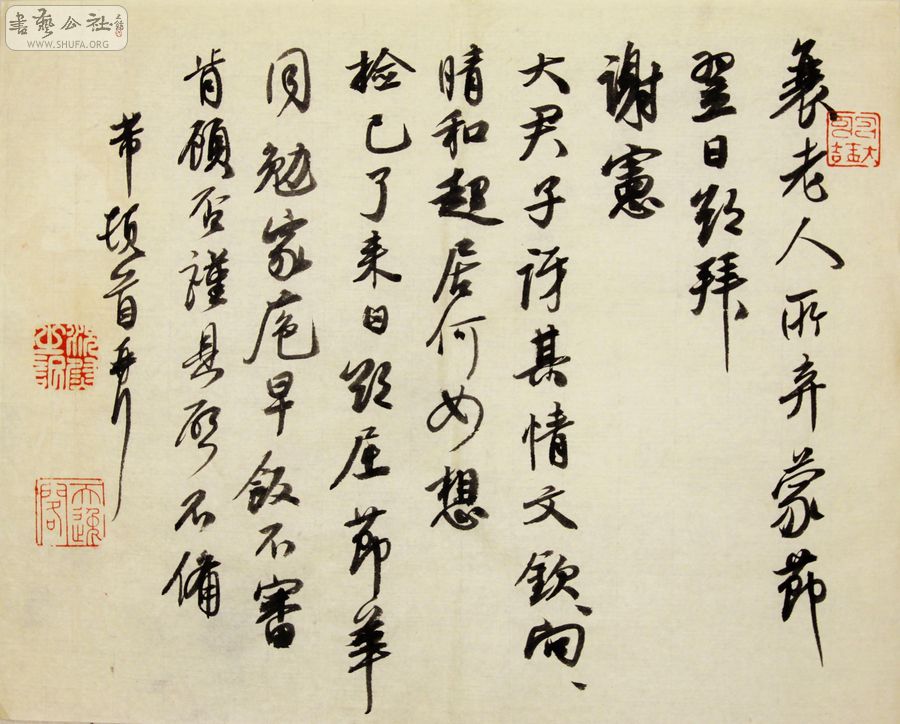 衰老人所弃蒙节
翌日欲拜
谢宪
大君子谅其情文钦向、
晴和起居何如想
检已了来日欲屈节华
同勉家庖早飯不審
肯顧否謹具啓不備
芾頓首再行
書藝公社
WWW.SHUFA.ORG